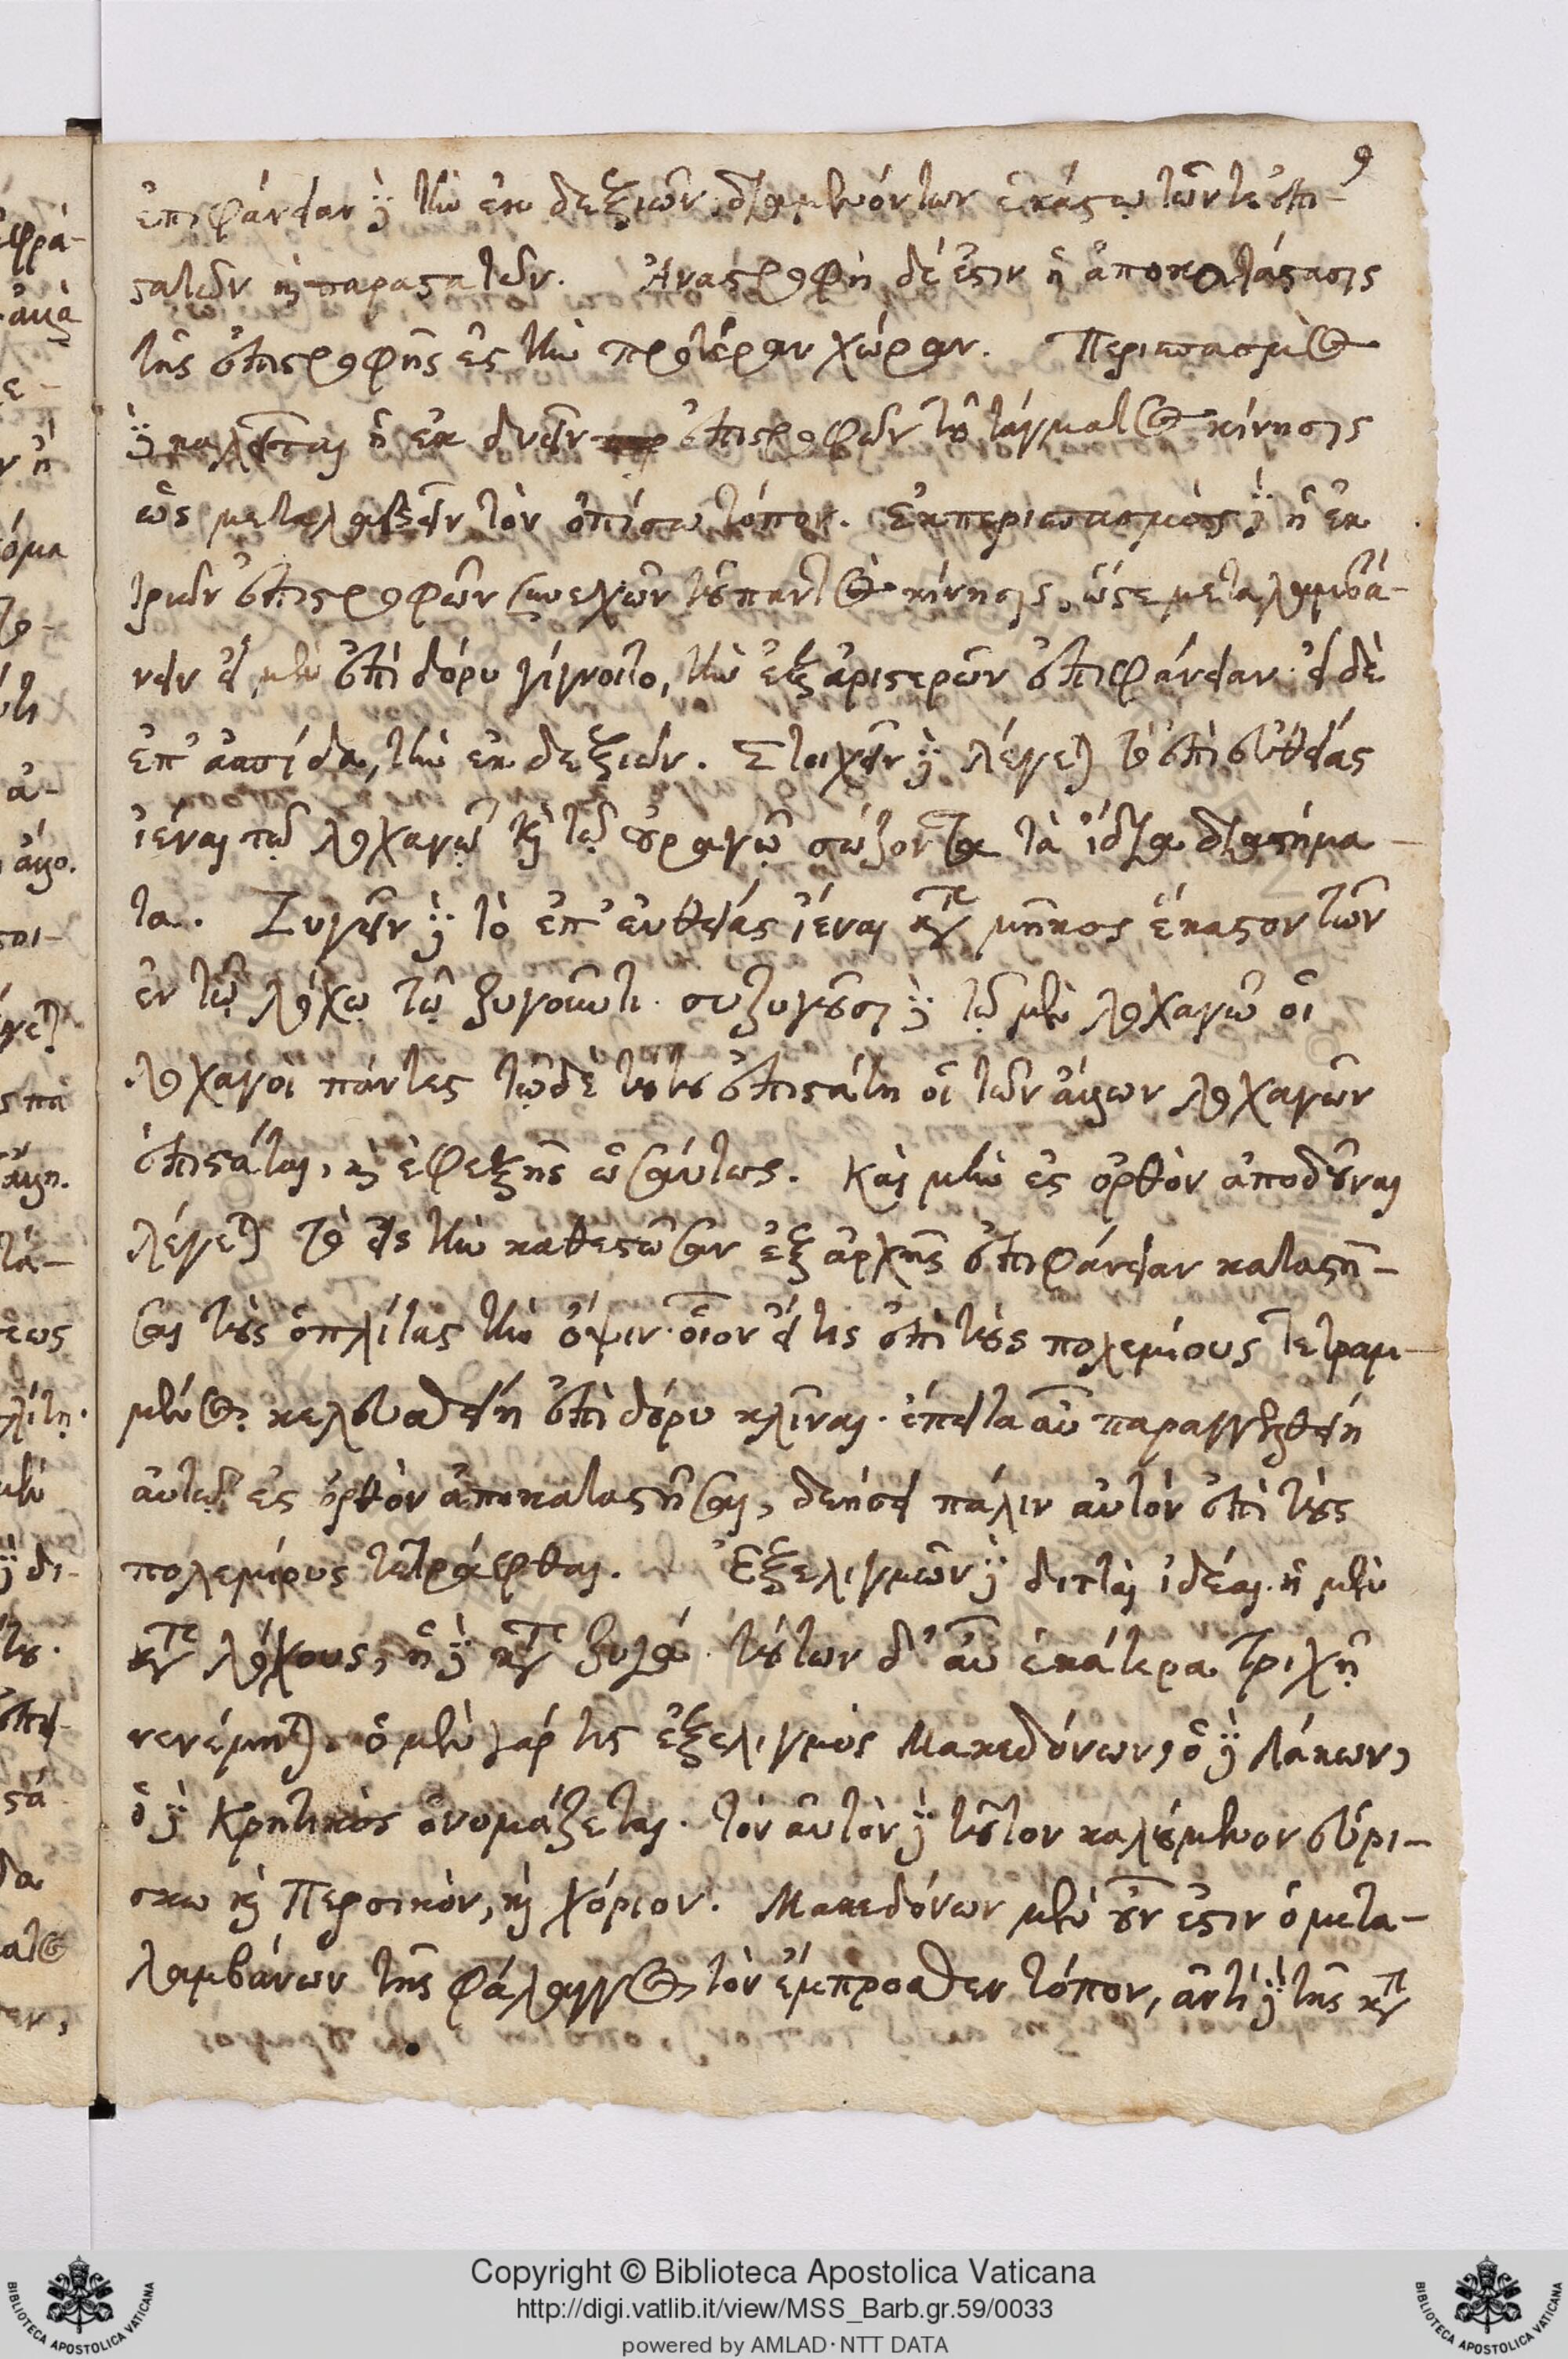 9
ἐπιφάνειαν δὲ τὴν ἐκ δεξιῶν, διαμενόντων ἑκάστῳ τῶν τε ἐπι-
στατῶν καὶ παραστατῶν. Ἀναστροφὴ δέ ἐστιν ἡ ἀποκατάστασις
τῆς ἐπιστροφῆς ἐς τὴν προτέραν χώραν. Περισπασμὸς
δὲ καλεῖται ἡ ἐκ δυεῖν ἐπιστροφῶν τοῦ τάγματος κίνησις
ὡς μεταλαβεῖν τὸν ὀπίσω τόπον. Ἐκπερισπασμὸς δὲ ἡ ἐκ
τριῶν ἐπιστροφῶν συνεχῶν τοῦ παντὸς κίνησις, ὥστε μεταλαμβά-
νειν εἰ μὲν ἐπὶ δόρυ γίγνοιτο, τὴν ἐξ ἀριστερῶν ἐπιφάνειαν· εἰ δὲ
ἐπ' ἀσπίδα, τὴν ἐκ δεξιῶν. Στοιχεῖν δὲ λέγεται τὸ ἐπ' εὐθείας
ἰέναι τῷ λοχαγῷ καὶ τῷ οὐραγῷ σώζοντα τὰ ἴδια διαστήμα-
τα. Ζυγεῖν δὲ τὸ ἐπ' εὐθείας ἰέναι κατὰ μῆκος ἕκαστον τῶν
ἐν τῷ λόχῳ τῷ ζυγοῦντι· συζυγοῦσι δὲ τῷ μὲν λοχαγῷ οἱ
λοχαγοὶ πάντες τῷ δὲ τούτου ἐπιστάτῃ οἱ τῶν ἄλλων λοχαγῶν
ἐπιστάται, καὶ ἐφεξῆς ὡσαύτως. Καὶ μὴν ἐς ὀρθὸν ἀποδοῦναι
λέγεται τὸ εἰς τὴν καθεστῶσαν ἐξ ἀρχῆς ἐπιφάνειαν καταστῆ-
σαι τοὺς ὁπλίτας τὴν ὄψιν· οἷον εἴ τις ἐπὶ τοὺς πολεμίους τετραμ-
μένος κελευσθείη ἐπὶ δόρυ κλῖναι· ἔπειτα αὖ παραγγελθείη
αὐτῷ ἐς ὀρθὸν ἀποκαταστῆσαι, δεήσει πάλιν αὐτὸν ἐπὶ τοὺς
πολεμίους τετράφθαι. Ἐξελιγμῶν δὲ διτταὶ ἰδέαι· ἡ μὲν
κατὰ λόχους, ἡ δὲ κατὰ ζυγά· τούτων δ' αὖ ἑκάτερα τριχῆ
νενέμηται. ὁ μὲν γάρ τις ἐξελιγμὸς Μακεδόνων, ὁ δὲ Λάκων,
ὁ δὲ Κρητικὸς ὀνομάζεται· τὸν αὐτὸν δὲ τοῦτον καλούμενον εὑρί-
σκω καὶ Περσικὸν, καὶ χόριον. Μακεδόνων μὲν οὖν ἐστιν ὁ μετα-
λαμβάνων τῆς φάλαγγος τὸν ἔμπροσθεν τόπον, ἀντὶ δὲ τῆς κατὰ
Copyright © Biblioteca Apostolica Vaticana
http://digi.vatlib.it/view/MSS_Barb.gr.59/0033
powered by AMLAD·NTT DATA